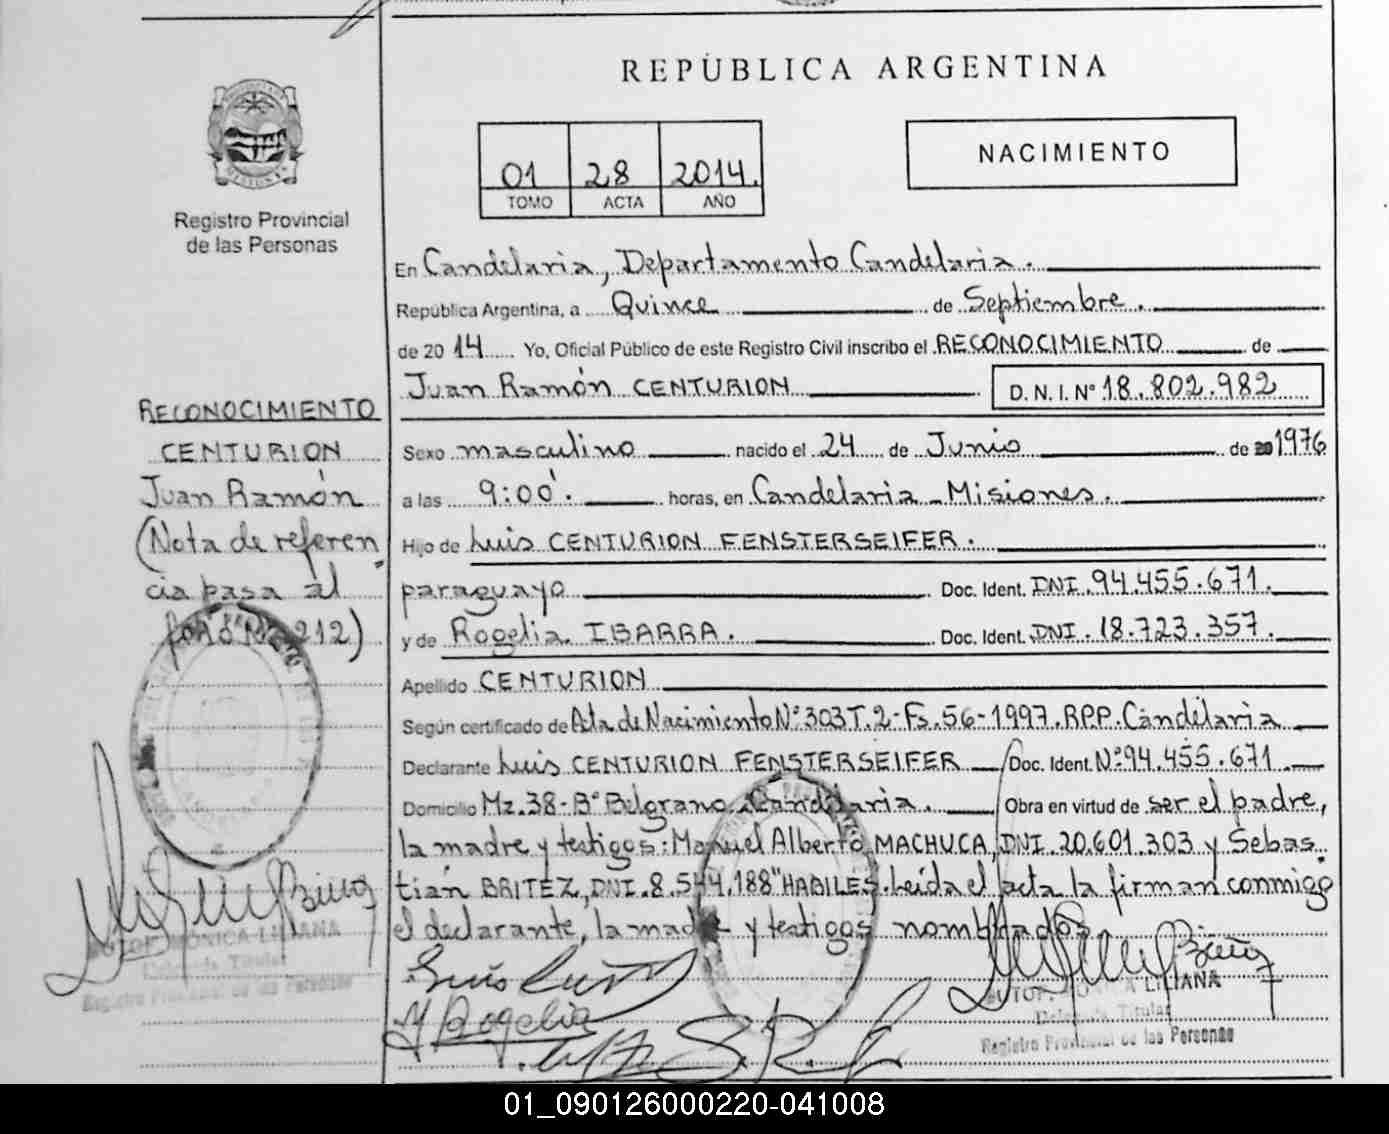 REPÚBLICA ARGENTINA
01 28 2014.
TOMO ACTA AÑO
NACIMIENTO
Registro Provincial
de las Personas
En Candelaria, Departamento Candelaria.
República Argentina, a Quince de Septiembre.
de 2014 Yo, Oficial Público de este Registro Civil inscribo el RECONOCIMIENTO de
Juan Ramón CENTURION D.N.I. Nº 18.802.982
RECONOCIMIENTO
CENTURION
Juan Ramón
(Nota de referen
cia pasa al
212)
Sexo masculino nacido el 24 de Junio de 1976
a las 9:00'. horas, en Candelaria - Misiones.
Hijo de Luis CENTURION FENSTERSEIFER.
paraguayo Doc. Ident. DNI. 94.455.671.
y de Rogelia IBARRA. Doc. Ident. DNI. 18.723.357.
Apellido CENTURION
Según certificado de Acta de Nacimiento Nº 303 T. 2- Fs. 56- 1997. RPP. Candelaria
Declarante Luis CENTURION FENSTERSEIFER Doc. Ident. Nº 94.455.671
Domicilio Mz. 38- Bº Belgrano. Candelaria. Obra en virtud de ser el padre,
la madre y testigos: Manuel Alberto MACHUCA, DNI. 20.601.303 y Sebas
tián BRITEZ, DNI. 8.544.188 "HABILES. Leída el acta la firman conmigo
el declarante, la madre y testigos nombrados
Rogelia
MÓNICA LILIANA
Titular
Registro Provincial de las Personas
MÓNICA LILIANA
Titular
Registro Provincial de las Personas
01_090126000220-041008